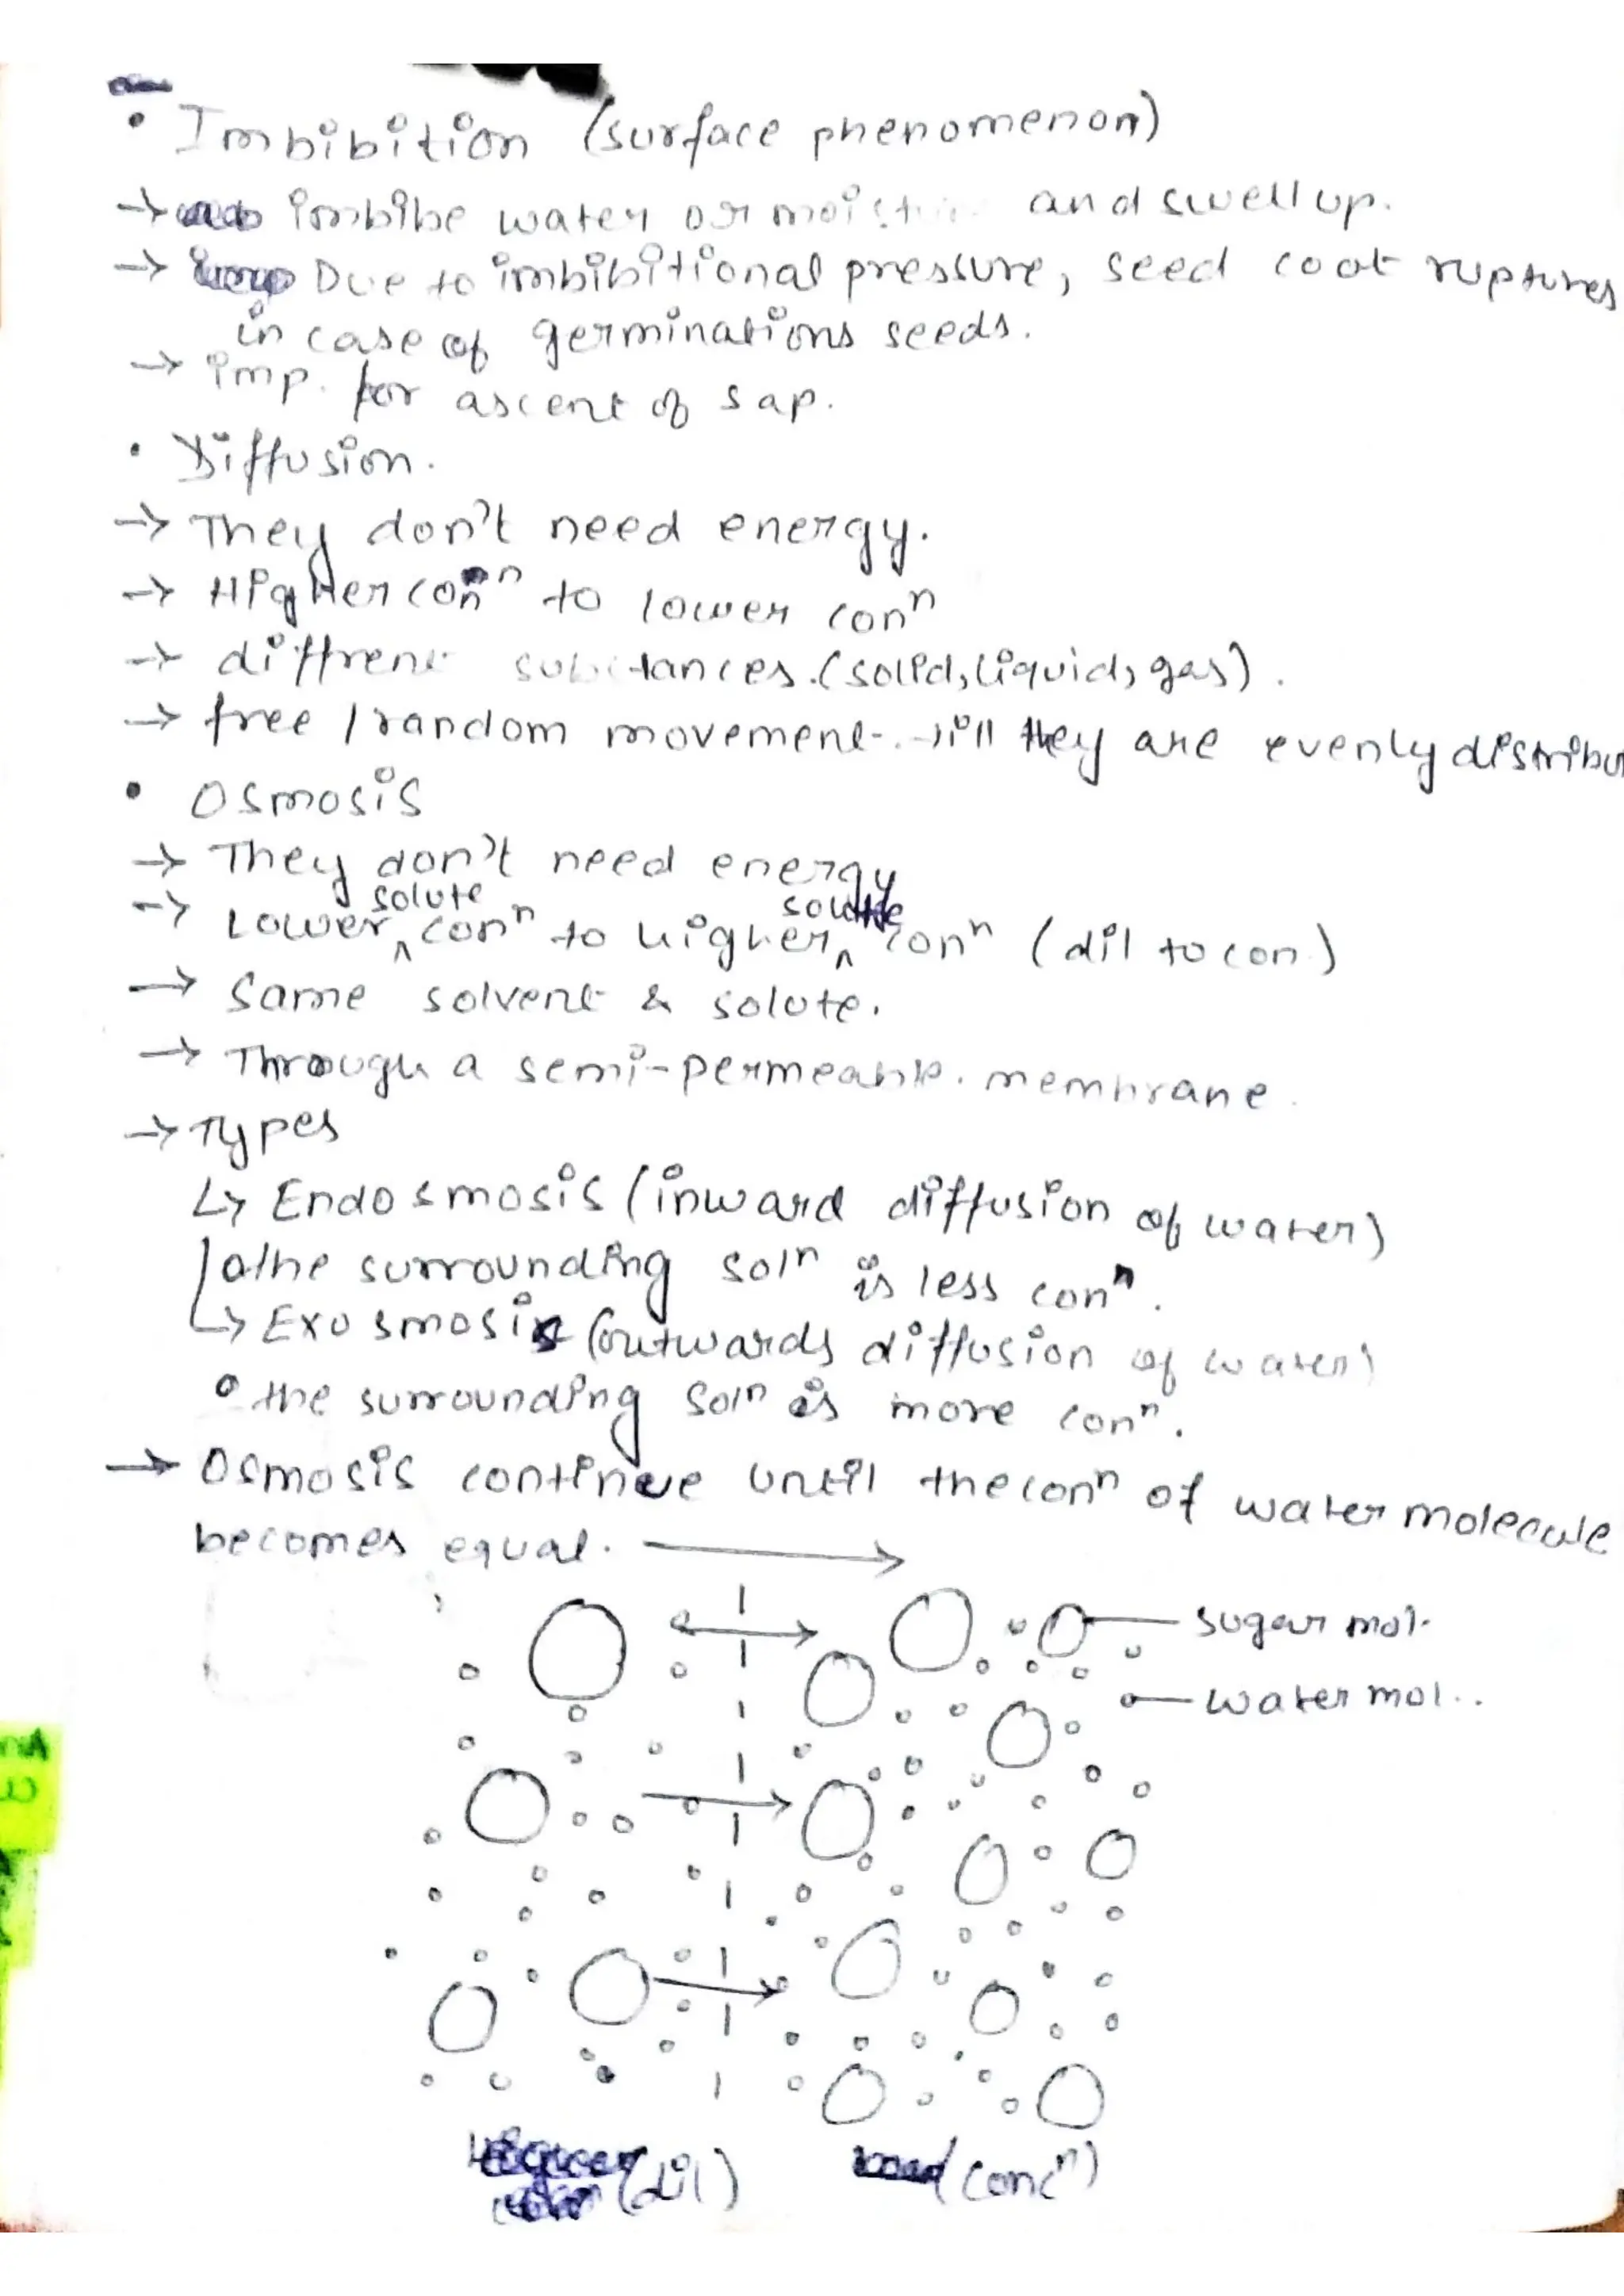 • Imbibition (surface phenomenon)
→ imbibe water or moistur and swell up.
→ Due to imbibitional pressure, seed coat ruptures
in case of germinations seeds.
→ imp. for ascent of sap.
• Diffusion.
→ They don't need energy.
→ Higher conⁿ to lower conⁿ
→ diffrent substances.(solid, liquid, gas).
→ free / random movement. till they are evenly distribu
• Osmosis
→ They don't need energy
→ Lower solute conⁿ to higher solute conⁿ (dil to con.)
→ Same solvent & solute.
→ Through a semi-permeable. membrane.
→ Types
↳ Endosmosis (inward diffusion of water)
o the surrounding solⁿ is less conⁿ.
↳ Exosmosis (outwards diffusion of water)
o the surrounding solⁿ is more conⁿ.
→ Osmosis continue until the conⁿ of water molecule
becomes equal. →
sugar mol.
water mol..
(dil) (concⁿ)